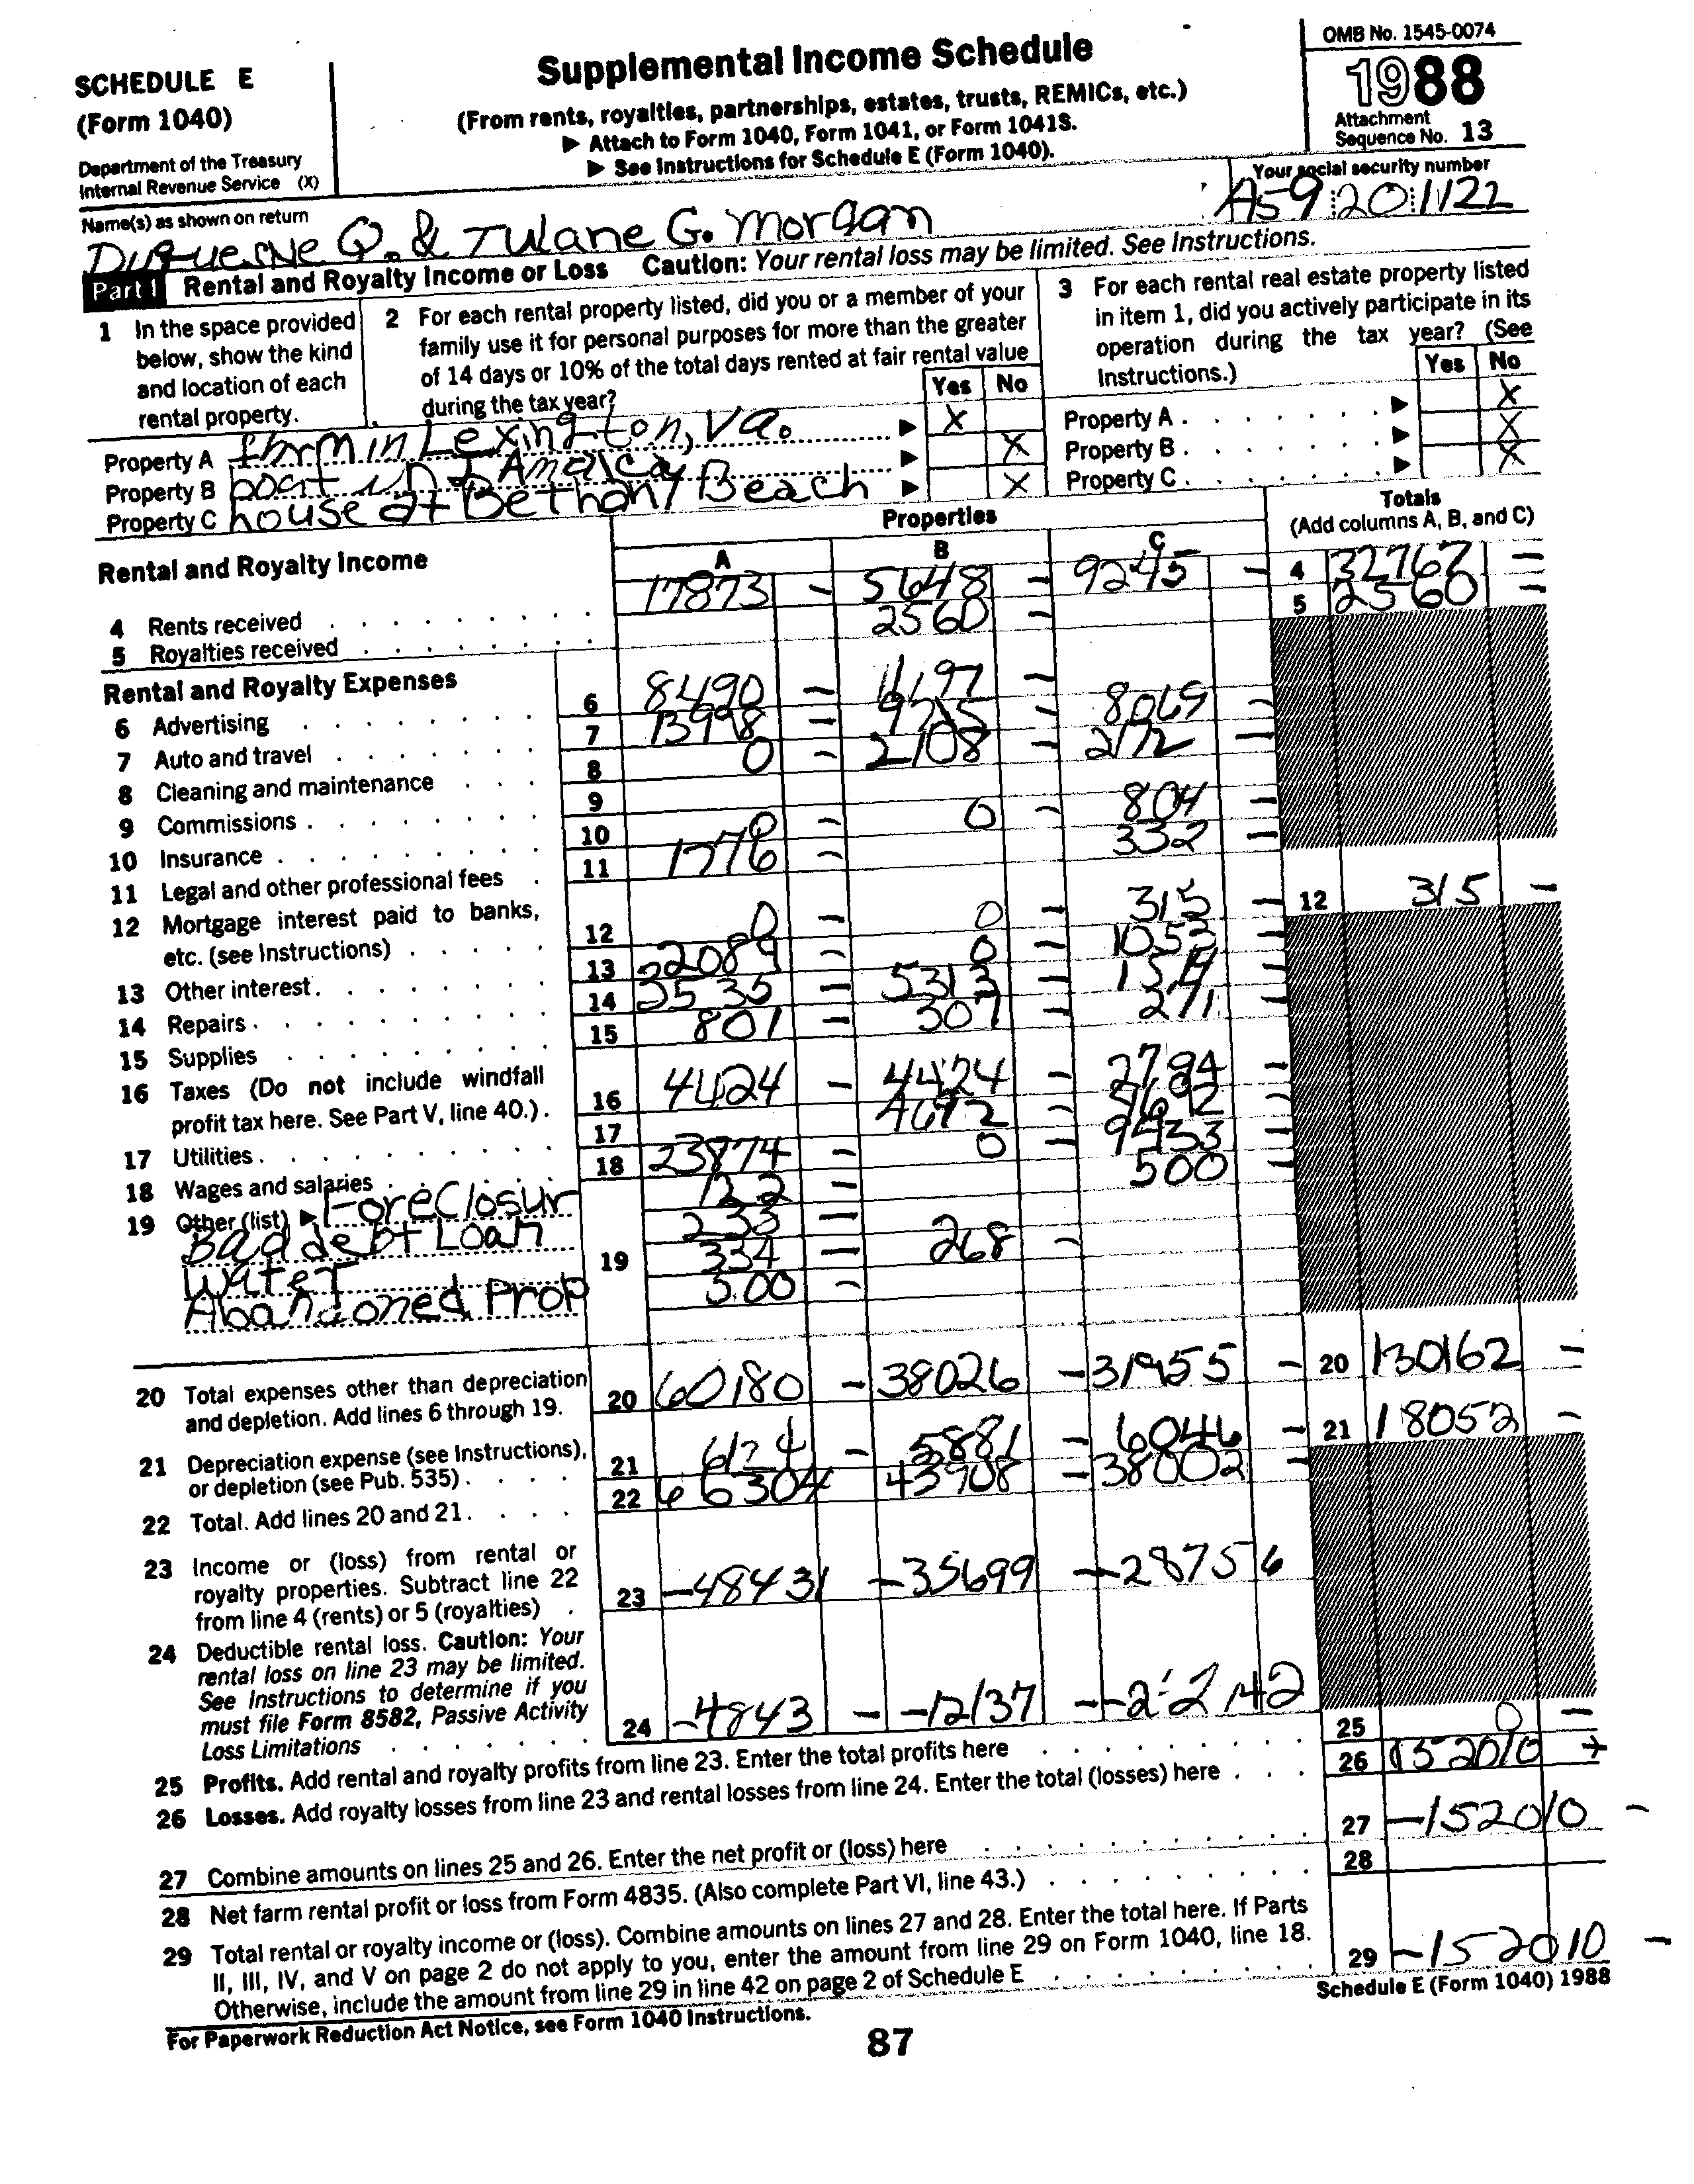 SCHEDULE E
(Form 1040)
Department of the Treasury
Internal Revenue Service (X)
Supplemental Income Schedule
(From rents, royalties, partnerships, estates, trusts, REMICs, etc.)
▶ Attach to Form 1040, Form 1041, or Form 1041S.
▶ See Instructions for Schedule E (Form 1040).
OMB No. 1545-0074
1988
Attachment
Sequence No. 13
Name(s) as shown on return
Duquesne Q. & Tulane G. Morgan
Your social security number
20 1122
Part I Rental and Royalty Income or Loss Caution: Your rental loss may be limited. See Instructions.
1 In the space provided
below, show the kind
and location of each
rental property.
2 For each rental property listed, did you or a member of your
family use it for personal purposes for more than the greater
of 14 days or 10% of the total days rented at fair rental value
during the tax year?
Yes No
3 For each rental real estate property listed
in item 1, did you actively participate in its
operation during the tax year? (See
Instructions.)
Yes No
Property A farm in Lexington, Va. ▶ X Property A ▶ X
Property B boat in Jamaica ▶ X Property B ▶ X
Property C house at Bethany Beach ▶ X Property C ▶ X
Rental and Royalty Income
Properties
A B C
Totals
(Add columns A, B, and C)
4 Rents received 17873 – 5648 – 9245 – 4 32767 –
5 Royalties received 2560 – 5 2560 –
Rental and Royalty Expenses
6 Advertising 6 8490 – 11197 –
7 Auto and travel 7 13998 – 9715 – 8069 –
8 Cleaning and maintenance 8 0 – 2108 – 2172 –
9 Commissions 9
10 Insurance 10 0 – 0 – 804 –
11 Legal and other professional fees 11 1776 – 332 –
12 Mortgage interest paid to banks,
etc. (see Instructions) 12 0 – 0 – 315 – 12 315 –
13 Other interest 13 22089 – 0 – 1053 –
14 Repairs 14 3535 – 5313 – 1514 –
15 Supplies 15 801 – 307 – 271 –
16 Taxes (Do not include windfall
profit tax here. See Part V, line 40.) 16 4424 – 4424 – 2794 –
17 Utilities 17 4692 –
18 Wages and salaries 18 23874 – 0 – 9433 –
19 Other (list) ▶ Foreclosur 122 – 500 –
Bad debt Loan 233 –
Water 19 334 – 268 –
Abandoned Prop 500 –
20 Total expenses other than depreciation
and depletion. Add lines 6 through 19. 20 60180 – 38026 – 31955 – 20 130162 –
21 Depreciation expense (see Instructions),
or depletion (see Pub. 535) 21 6124 – 5881 – 6046 – 21 18052 –
22 Total. Add lines 20 and 21. 22 66304 43908 – 38002 –
23 Income or (loss) from rental or
royalty properties. Subtract line 22
from line 4 (rents) or 5 (royalties) 23 –48431 –35699 –28756
24 Deductible rental loss. Caution: Your
rental loss on line 23 may be limited.
See Instructions to determine if you
must file Form 8582, Passive Activity
Loss Limitations 24 –4843 – –12137
25 Profits. Add rental and royalty profits from line 23. Enter the total profits here 25 0 –
26 Losses. Add royalty losses from line 23 and rental losses from line 24. Enter the total (losses) here 26
27 Combine amounts on lines 25 and 26. Enter the net profit or (loss) here 27 –152010 –
28 Net farm rental profit or loss from Form 4835. (Also complete Part VI, line 43.) 28
29 Total rental or royalty income or (loss). Combine amounts on lines 27 and 28. Enter the total here. If Parts
II, III, IV, and V on page 2 do not apply to you, enter the amount from line 29 on Form 1040, line 18.
Otherwise, include the amount from line 29 in line 42 on page 2 of Schedule E 29 –152010 –
For Paperwork Reduction Act Notice, see Form 1040 Instructions. Schedule E (Form 1040) 1988
87